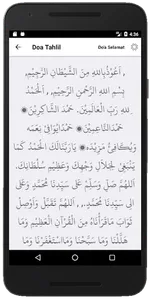 4:36
Doa Tahlil
Doa Selamat
أَعُوْذُ بِاللهِ مِنَ الشَّيْطَانِ الرَّجِيْمِ,
بِسْمِ اللهِ الرَّحْمٰنِ الرَّحِيْمِ, اَلْحَمْدُ
لِلهِ رَبِّ الْعَالَمِيْنَ. حَمْدَ الشَّاكِرِيْنَ
حَمْدَالنَّاعِمِيْنَ حَمْدًايُوَافِيْ نِعَمَهُ
وَيُكَافِئُ مَزِيْدَهُ يَارَبَّنَالَكَ الْحَمْدُ كَمَا
يَنْبَغِيْ لِجَلَالِ وَجْهِكَ وَعَظِيْمِ سُلْطَانِكَ.
اَللهُمَّ صَلِّ وَسَلِّمْ عَلَى سَيِّدِنَا مُحَمَّدٍ وَعَلَى
اٰلِ سَيِّدِنَا مُحَمَّدٍ. اَللهُمَّ تَقَبَّلْ وَاَوْصِلْ
ثَوَابَ مَاقَرَأْنَاهُ مِنَ الْقُرْآنِ الْعَظِيْمِ وَمَا
هَلَّلْنَا وَمَا سَبَّحْنَا وَمَااسْتَغْفَرْنَا وَمَا